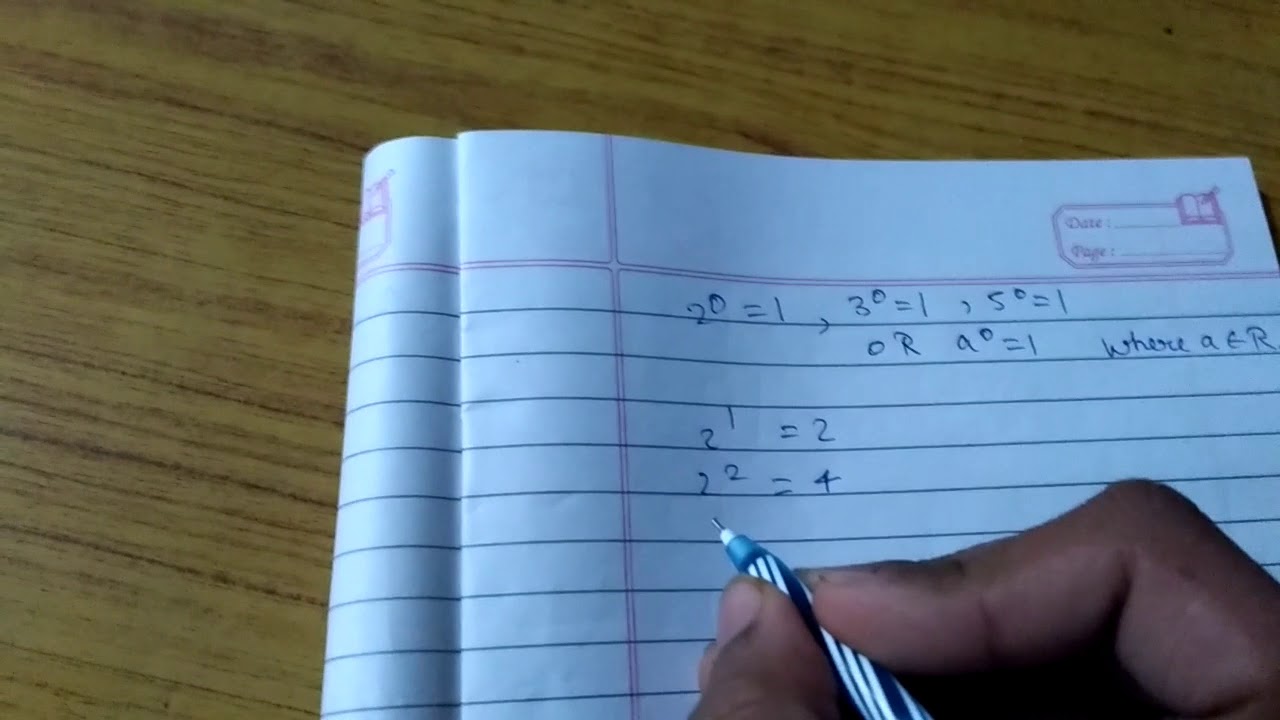 Date :
Page :
2⁰ = 1 , 3⁰ = 1 , 5⁰ = 1
OR a⁰ = 1 where a ∈ R.
2¹ = 2
2² = 4